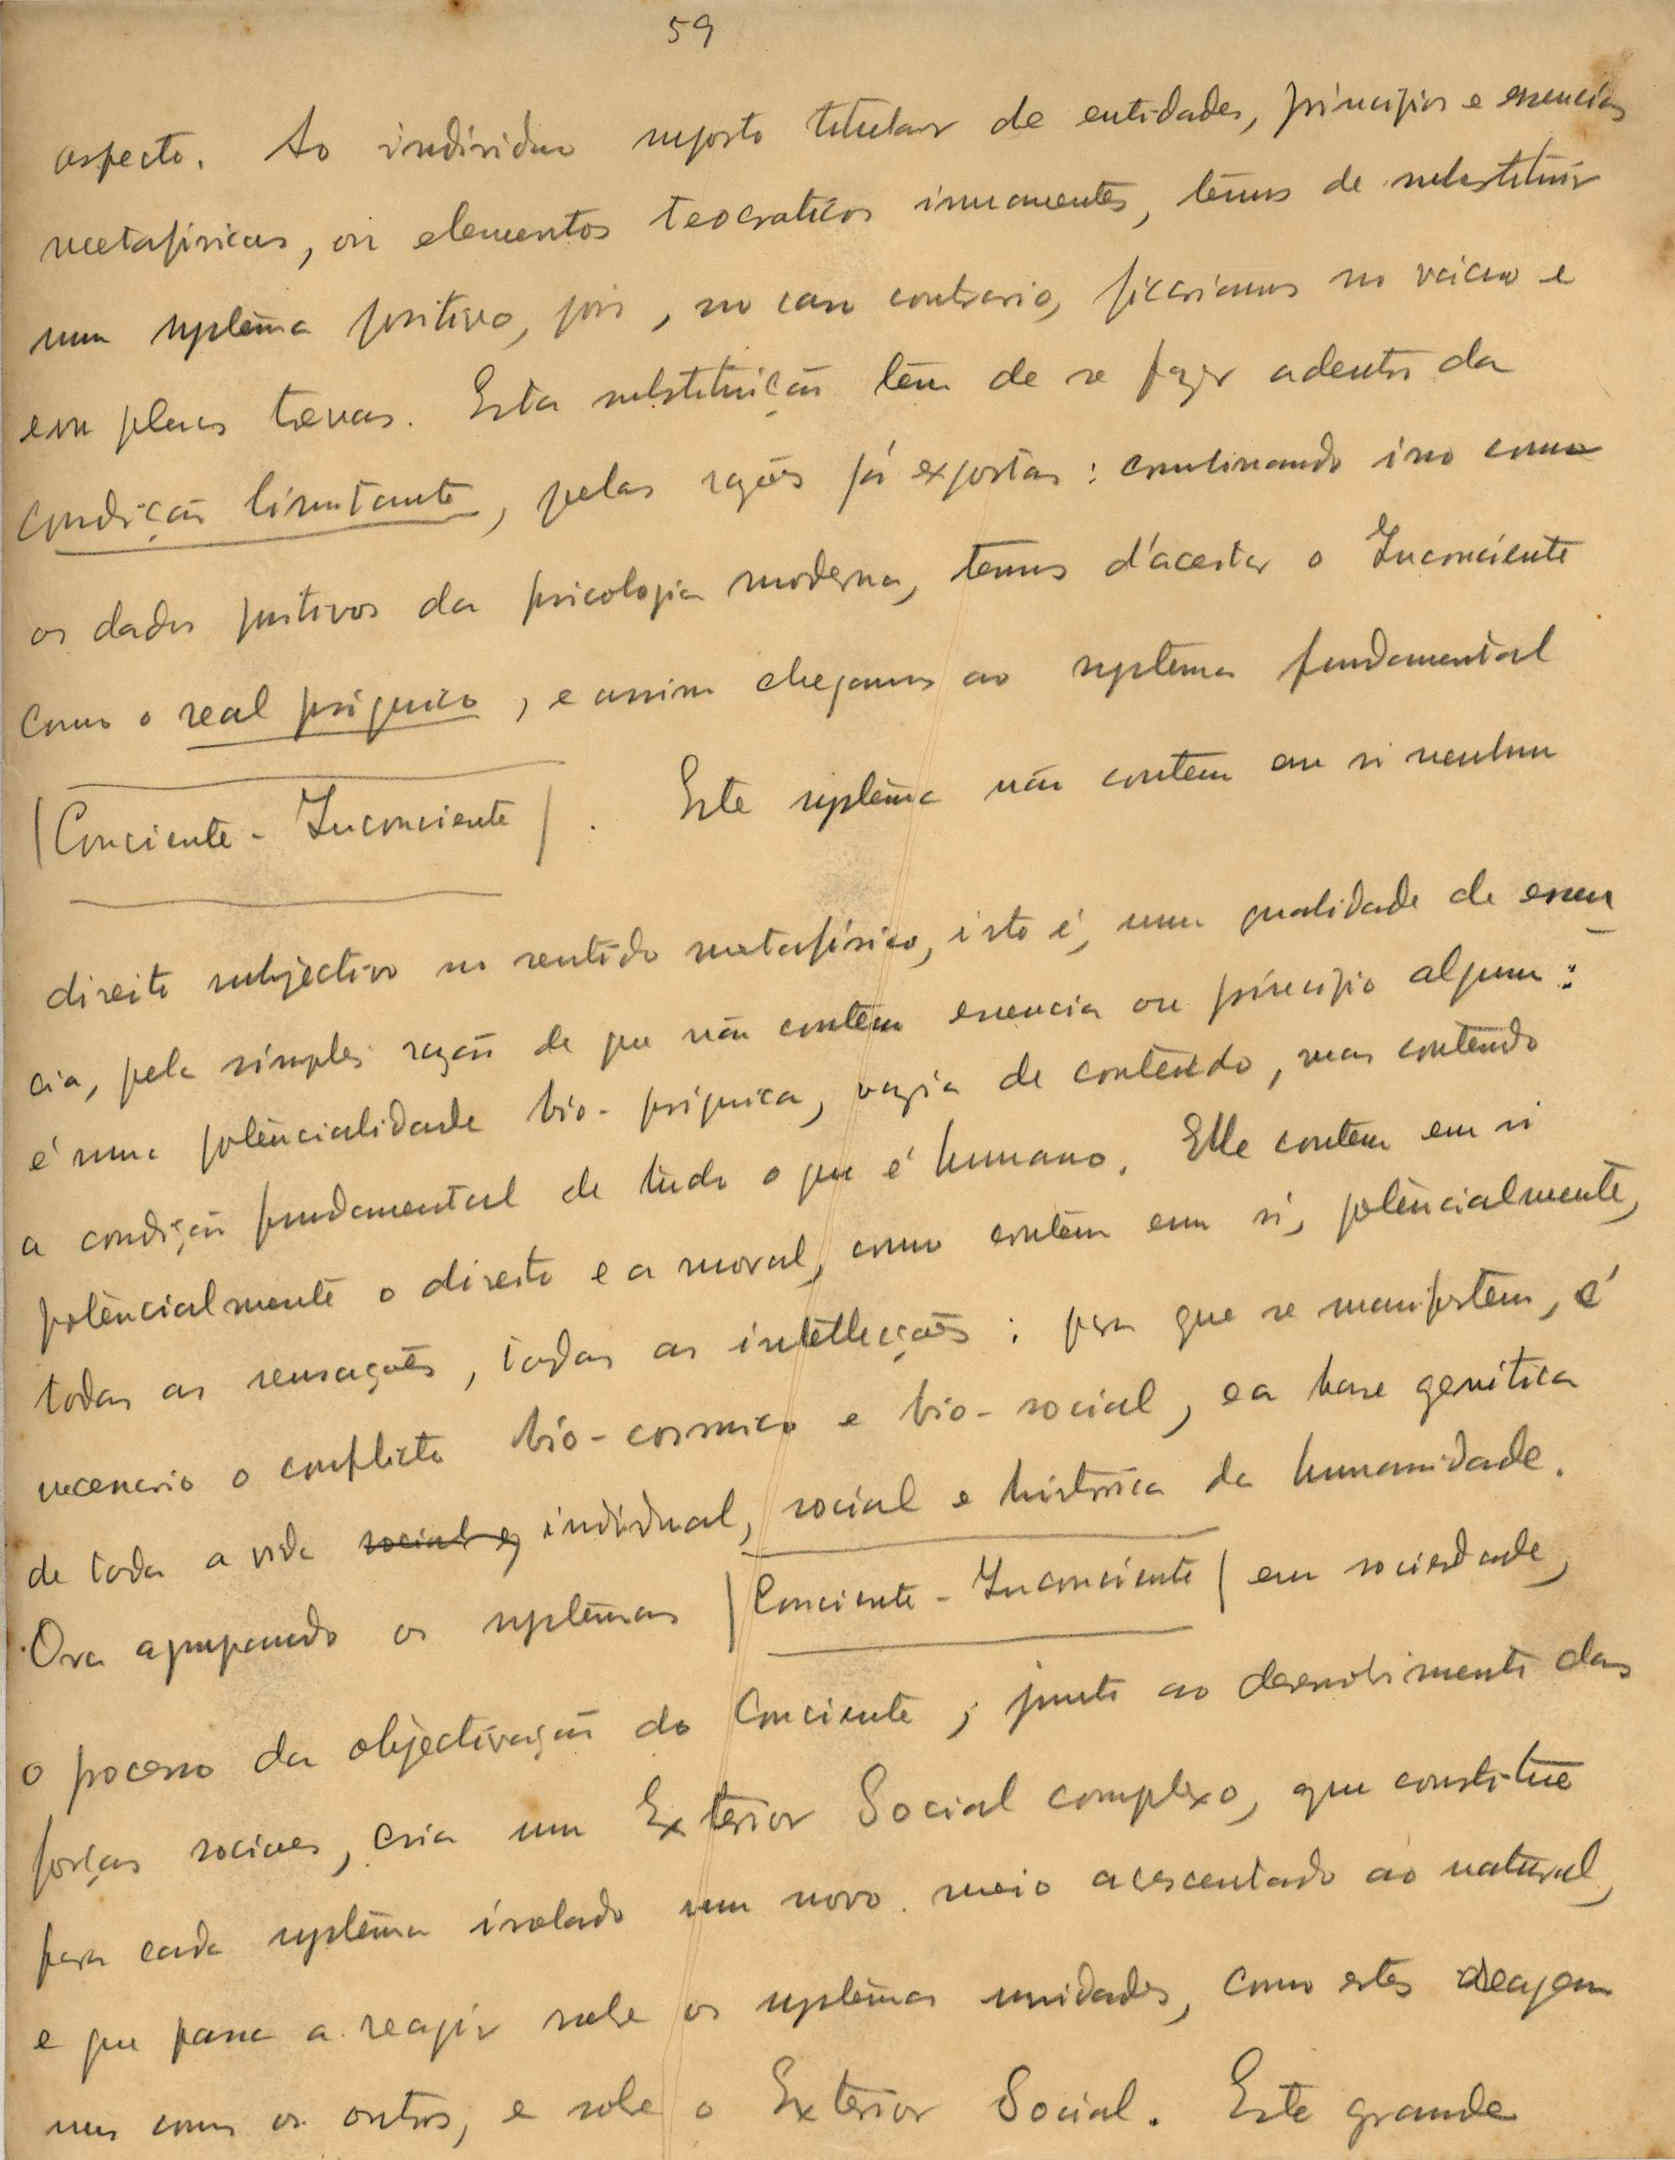 59
aspecto. Ao individuo suposto titular de entidades, principios e essencias
metafisicas, ou elementos teocraticos immanentes, têmos de substituir
um systêma positivo, pois, no caso contrario, ficariamos no vácuo e
em plenas trevas. Esta substituição têm de se fazer adentro da
condição limitante, pelas razões já expostas: combinando isso com
os dados positivos da psicologia moderna, temos d'aceitar o Inconciente
como o real psiquico, e assim chegamos ao systema fundamental
|Conciente - Inconciente|. Este systêma não contem em si nenhum
direito subjectivo no sentido metafisico, isto é, uma qualidade de essen
cia, pela simples razão de que não contêm essencia ou principio algum:
é uma potêncialidade bio-psiquica, vazia de conteúdo, mas contendo
a condição fundamental de tudo o que é humano. Elle contem em si
potêncialmente o direito e a moral, como contêm em si, potêncialmente,
todas as sensações, todas as intellecções: para que se manifestem, é
necessario o conflicto bio-cosmico e bio-social, e a base genética
de toda a vida social e, individual, social e histórica da humanidade.
Ora agrupando os systêmas |Conciente - Inconciente| em sociedade,
o processo da objectivação do Conciente, junto ao desenvolvimento das
forças sociaes, cria um Exterior Social complexo, que constitue
para cada systêma isolado um novo meio acrescentado ao natural,
e que passa a reagir sobre os systêmas unidades, como estes reagem
uns com os outros, e sobre o Exterior Social. Este grande